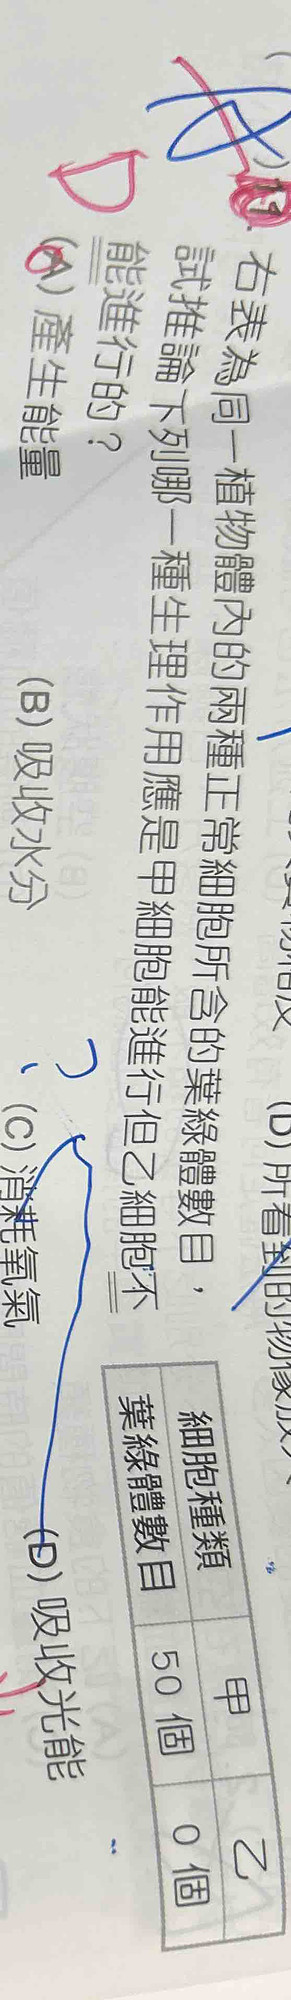 11. 右表為同一植物體內的兩種正常細胞所含的葉綠體數目，
試推論下列哪一種生理作用應是甲細胞能進行但乙細胞不
能進行的？
(A) 產生能量 (B) 吸收水分 (C) 消耗氧氣 (D) 吸收光能
細胞種類 甲 乙
葉綠體數目 50 個 0 個
D
?
(D) 所看到的物像放大